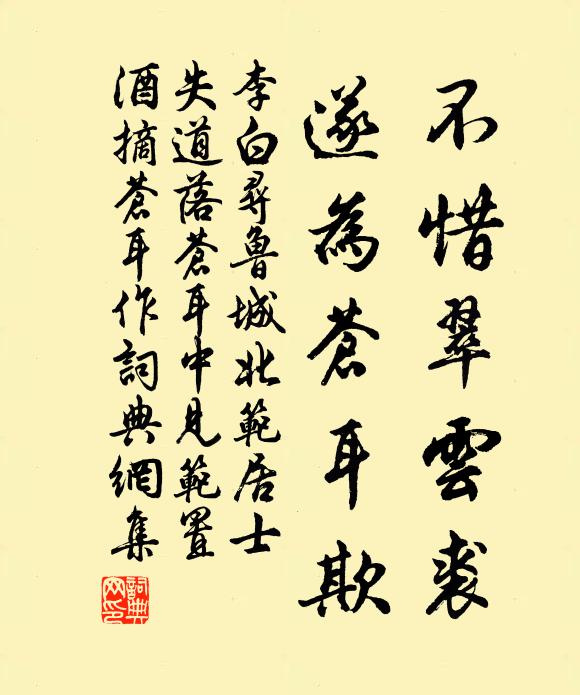 不惜翠雲裘
遂為蒼耳欺
李白尋魯城北範居士
失道落蒼耳中見範置
酒摘蒼耳作詞典網集
詞典網印